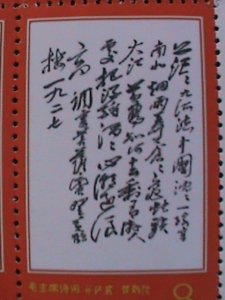 茫茫九派流中国沉沉一线穿
南北烟雨莽苍苍龟蛇锁
大江黄鹤知何去剩有游人
处把酒酹滔滔心潮逐浪
高 调寄菩萨蛮 登黄鹤
楼 一九二七
毛主席诗词 菩萨蛮 黄鹤楼